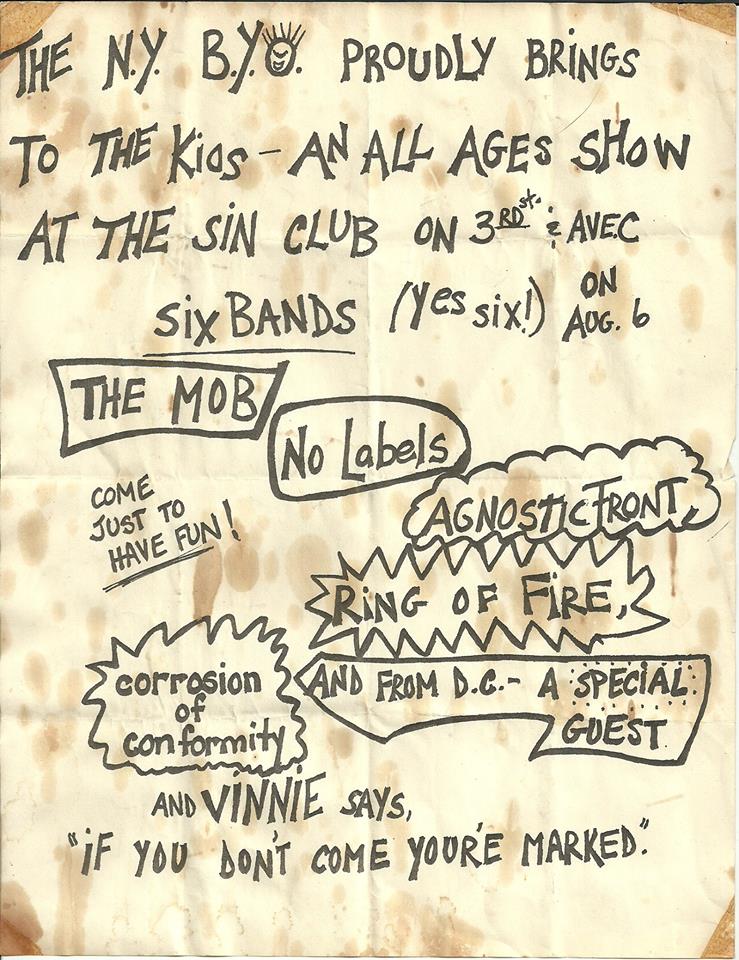 THE N.Y. B.Y.O. PROUDLY BRINGS
TO THE KiDS - AN ALL AGES SHOW
AT THE SiN CLUB ON 3RD st. & AVE.C
Six BANDS (Yes six!) ON AUG. 6
THE MOB
No Labels
AGNOSTiC FRONT,
COME
JUST TO
HAVE FUN!
RiNG OF FiRE,
corrosion
of
conformity
AND FROM D.C. - A SPECiAL
GUEST
AND ViNNiE SAYS,
"iF YOU DON'T COME YOUR'E MARKED."